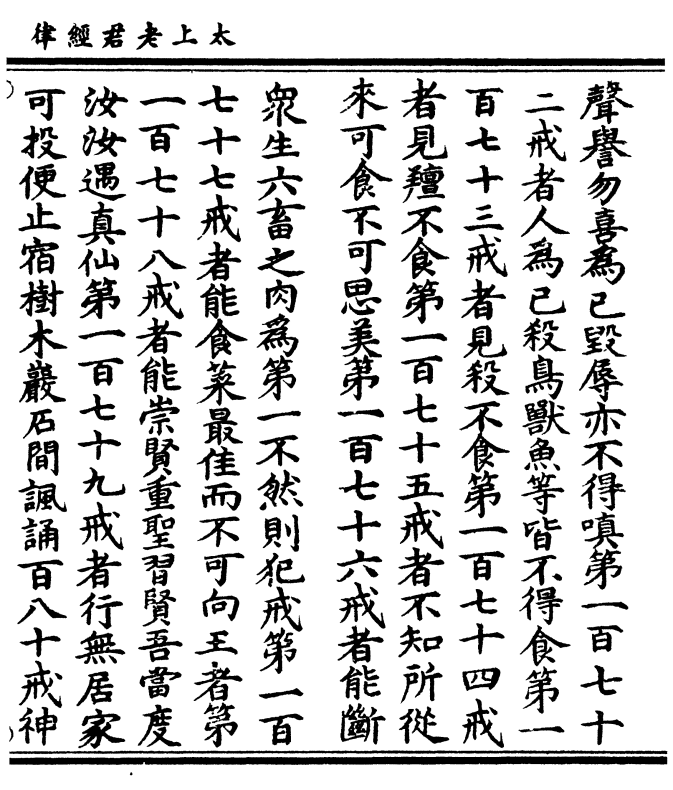 太上老君經律
聲譽勿喜為己毀辱亦不得嗔第一百七十
二戒者人為己殺鳥獸魚等皆不得食第一
百七十三戒者見殺不食第一百七十四戒
者見羶不食第一百七十五戒者不知所從
來可食不可思美第一百七十六戒者能斷
眾生六畜之肉為第一不然則犯戒第一百
七十七戒者能食菜最佳而不可向王者第
一百七十八戒者能崇賢重聖習賢吾當度
汝汝遇真仙第一百七十九戒者行無居家
可投便止宿樹木巖石間諷誦百八十戒神